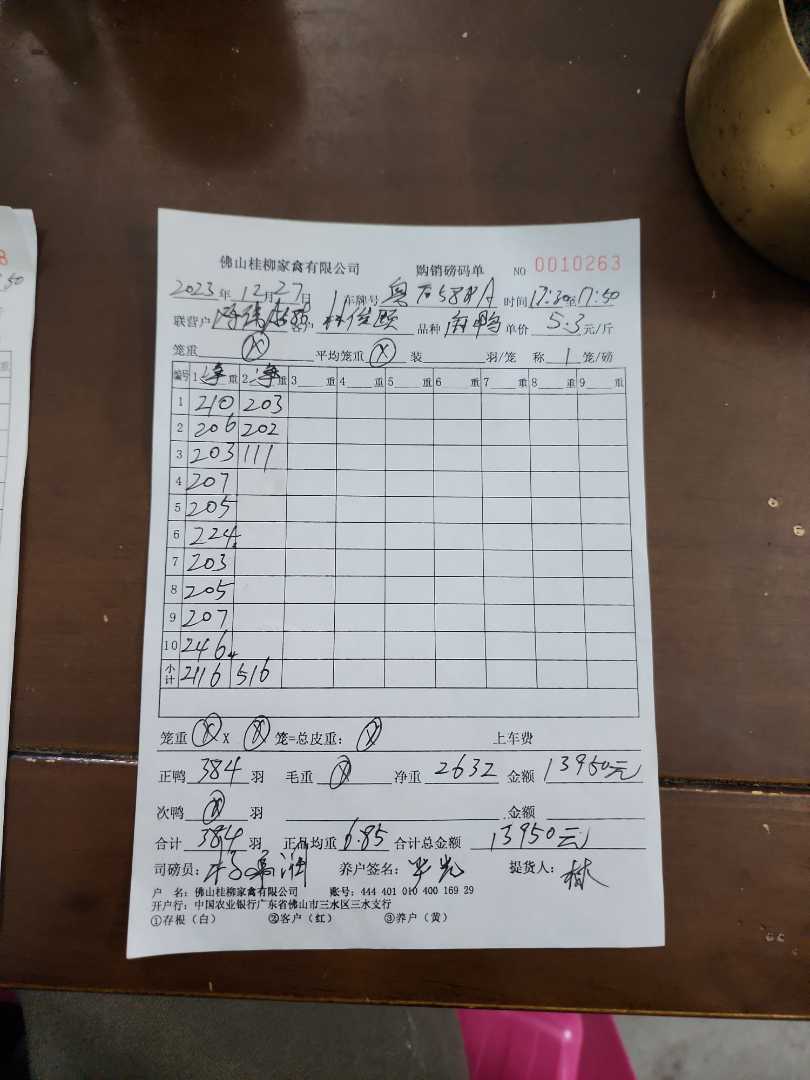 佛山桂柳家禽有限公司 购销磅码单 NO 0010263
2023年12月27日 车牌号 时间17:30 17:50
联营户 客户: 林俊颐 品种 麻鸭 单价 5.3 元/斤
笼重 ⓧ 平均笼重 ⓧ 装 羽/笼 称 1 笼/磅
编号 1 净 重 2 净 重 3 重 4 重 5 重 6 重 7 重 8 重 9 重
1 210 203
2 206 202
3 203 111
4 207
5 205
6 224
7 203
8 205
9 207
10 246
小计 2116 516
笼重 ⓧ X ⓧ 笼=总皮重: ⓧ 上车费
正鸭 384 羽 毛重 ⓧ 净重 2632 金额 13950元
次鸭 ⓧ 羽 金额
合计 384 羽 正品均重 6.85 合计总金额 13950元
司磅员: 养户签名: 提货人: 林
户 名: 佛山桂柳家禽有限公司 账号: 444 401 010 400 169 29
开户行: 中国农业银行广东省佛山市三水区三水支行
①存根(白) ②客户(红) ③养户(黄)
8
50
重